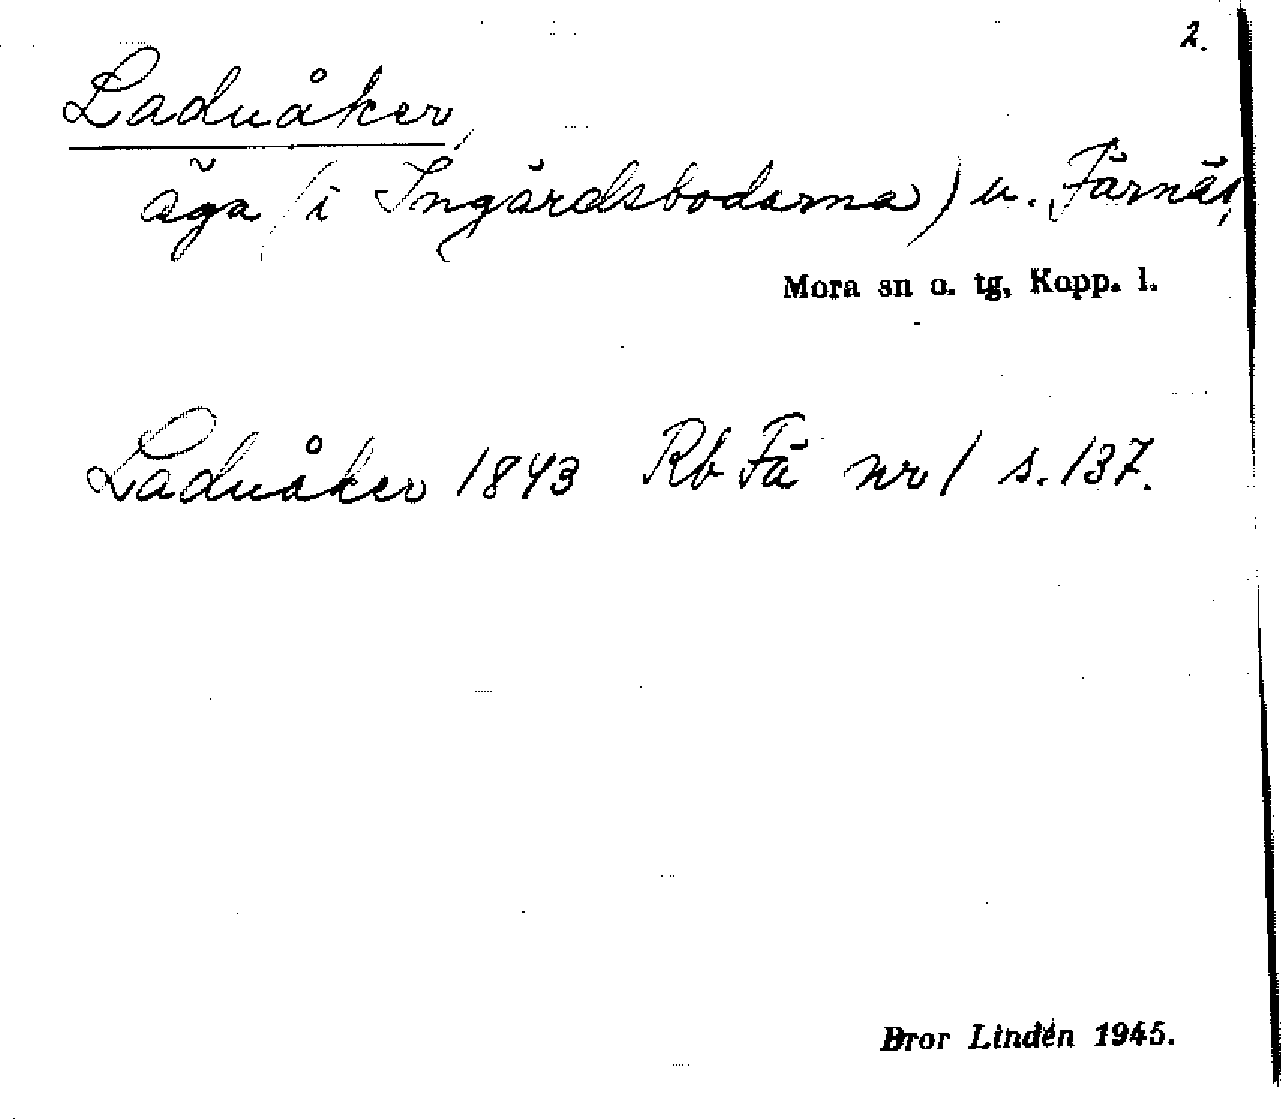 2.
Laduåker,
äga (i Ingärdsbodarna) u. Färnäs,
Mora sn o. tg, Kopp. l.
Laduåker 1843 Rb Fä nr 1 s. 137.
Bror Lindén 1945.